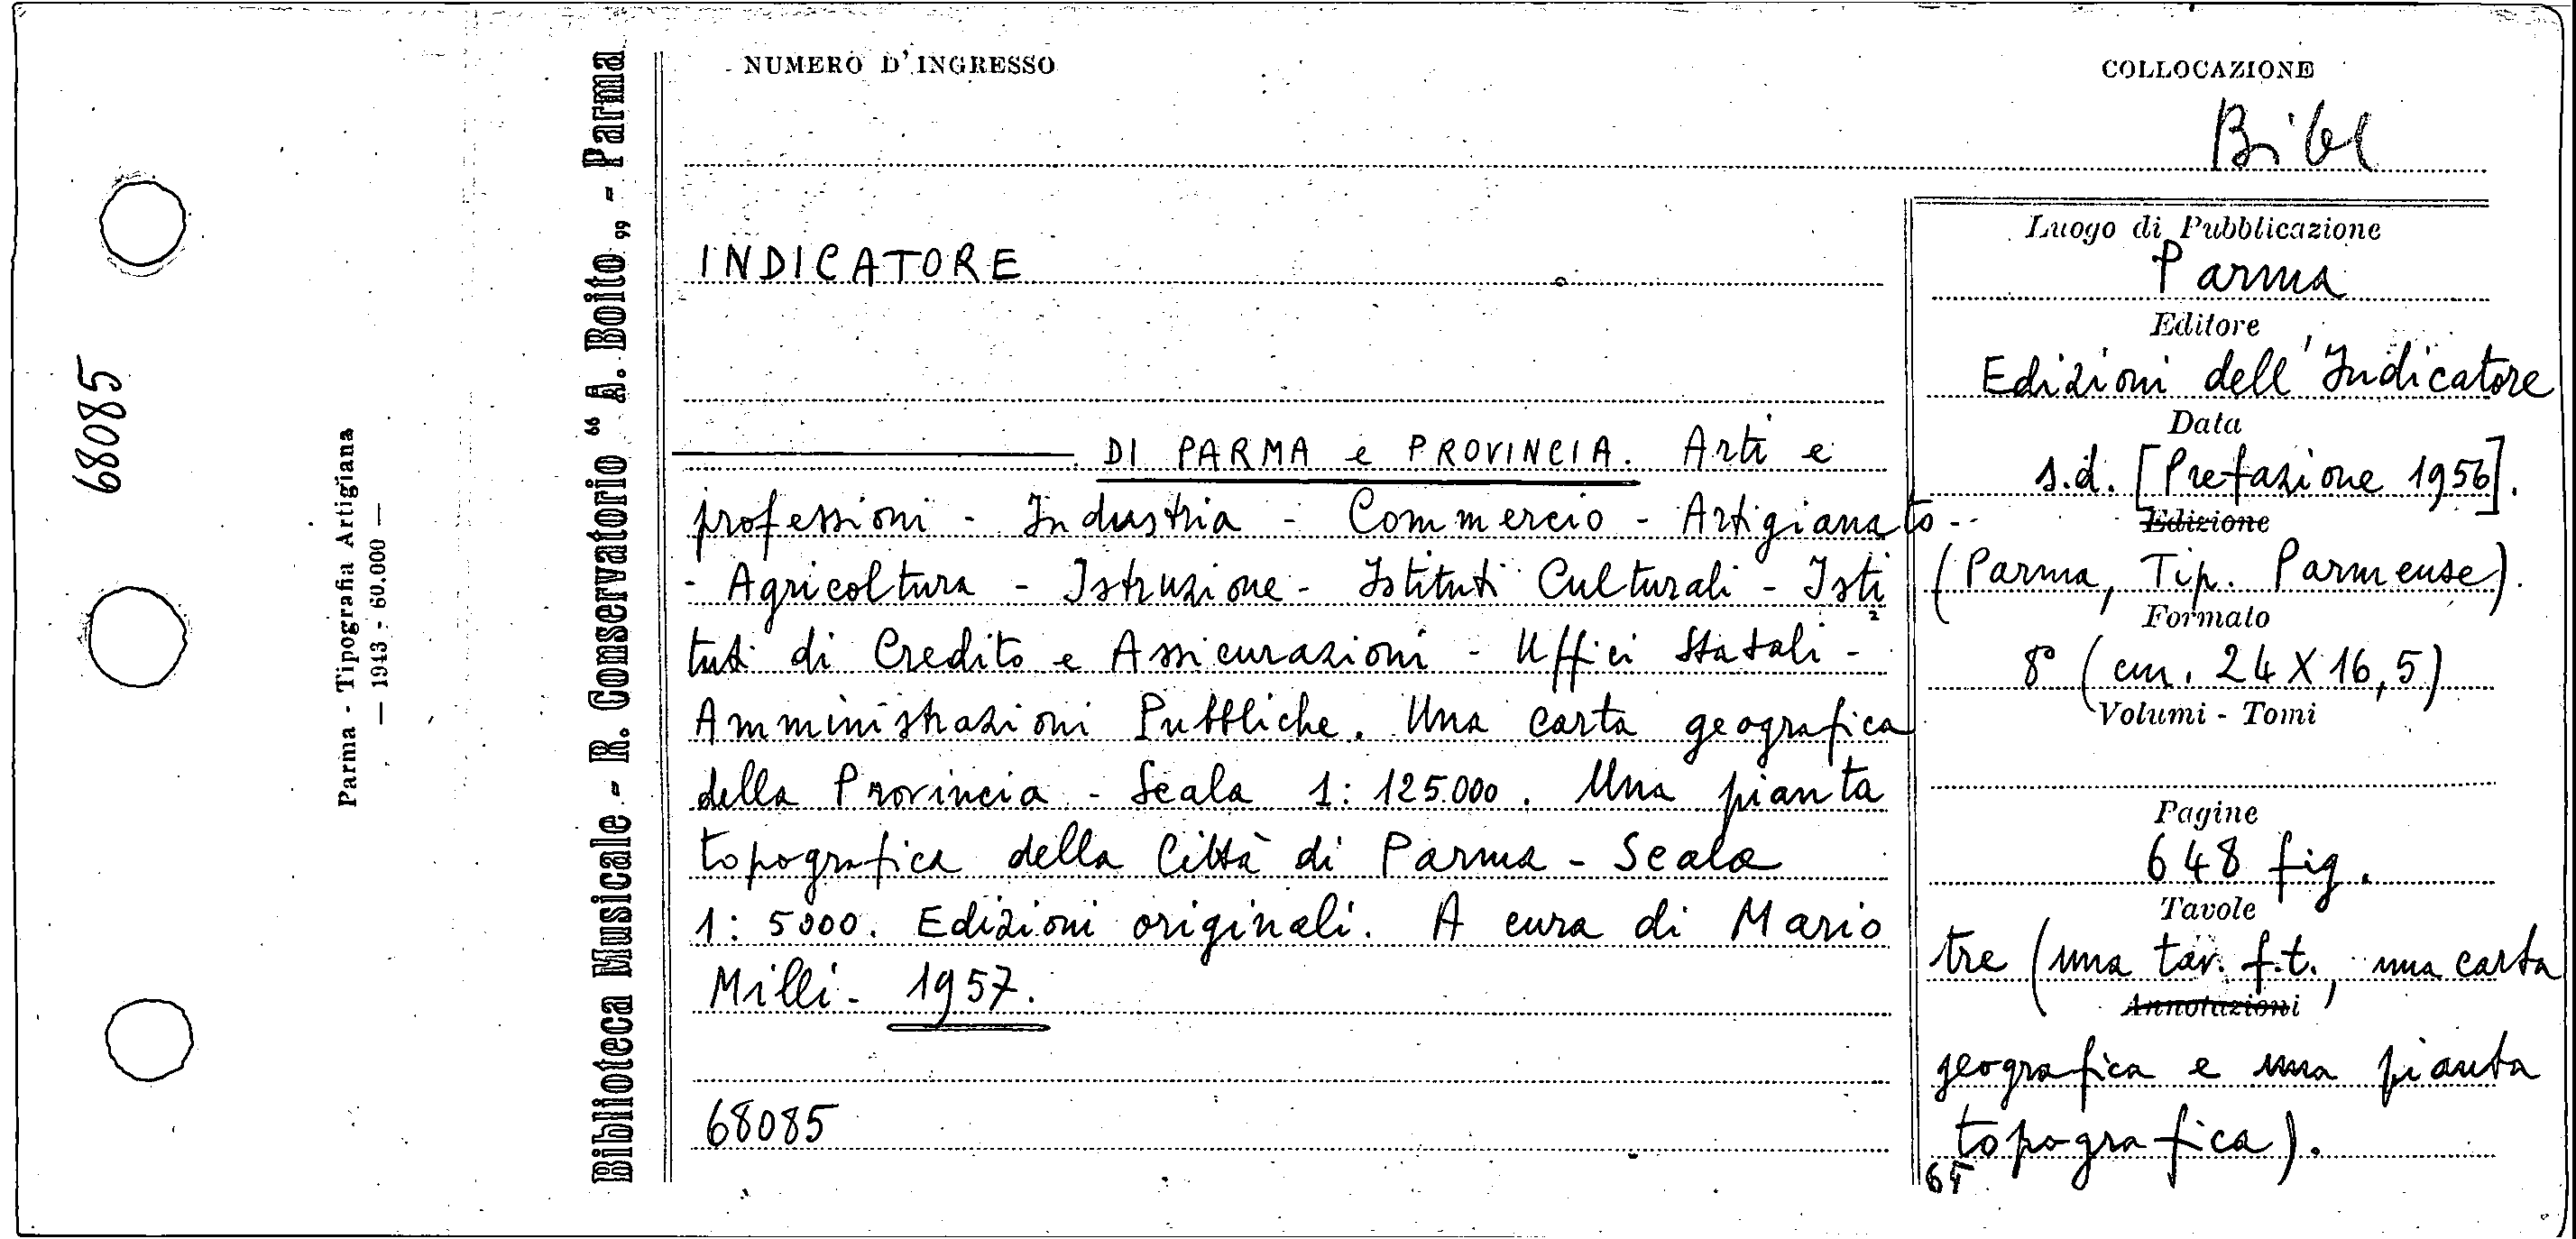 68085
Parma - Tipografia Artigiana
— 1943 - 60.000 —
Biblioteca Musicale - R. Conservatorio “ A. Boito „ - Parma
NUMERO D'INGRESSO
COLLOCAZIONE
Bibl
INDICATORE
DI PARMA e PROVINCIA. Arti e
professioni - Industria - Commercio - Artigianato -
- Agricoltura - Istruzione - Istituti Culturali - Isti
tuti di Credito e Assicurazioni - Uffici Statali -
Amministrazioni Pubbliche. Una carta geografica
della Provincia - Scala 1: 125.000. Una pianta
topografica della Città di Parma - Scala
1: 5000. Edizioni originali. A cura di Mario
Milli - 1957.
68085
Luogo di Pubblicazione
Parma
Editore
Edizioni dell'Indicatore
Data
s.d. [Prefazione 1956].
Edizione
(Parma, Tip. Parmense).
Formato
8° (cm. 24 X 16,5)
Volumi - Tomi
Pagine
648 fig.
Tavole
tre (una tav. f.t., una carta
Annotazioni
geografica e una pianta
topografica).